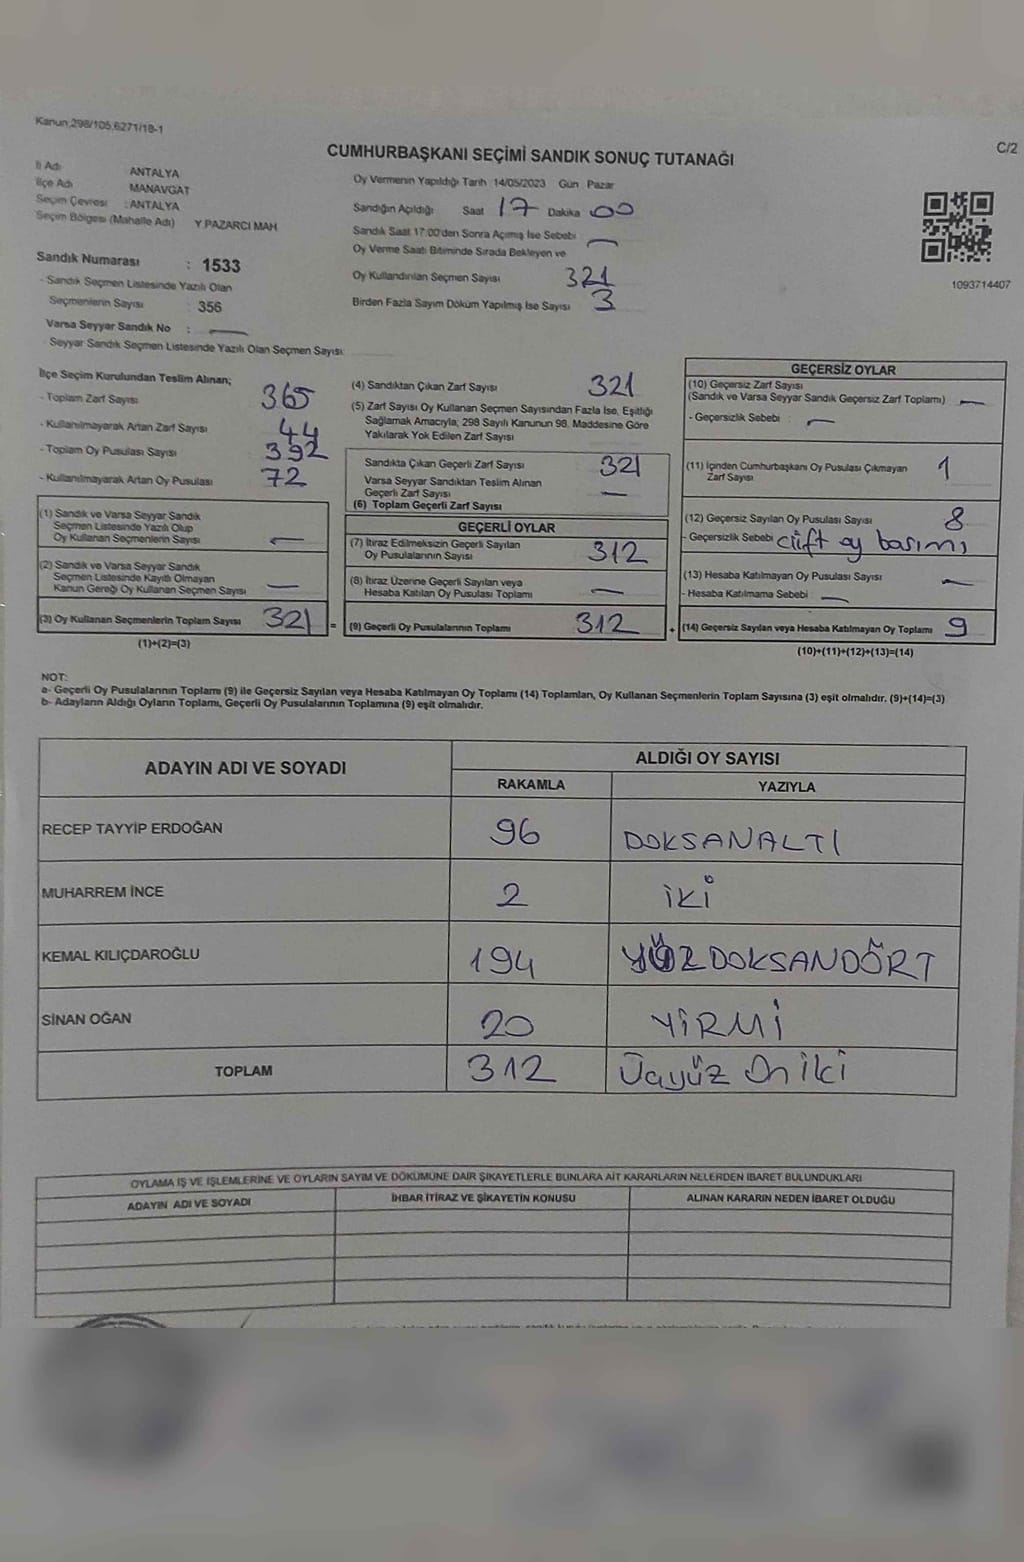 Kanun,298/105,6271/18-1
C/2
CUMHURBAŞKANI SEÇİMİ SANDIK SONUÇ TUTANAĞI
İl Adı ANTALYA
İlçe Adı MANAVGAT
Seçim Çevresi : ANTALYA
Seçim Bölgesi (Mahalle Adı) Y.PAZARCI MAH
Sandık Numarası : 1533
- Sandık Seçmen Listesinde Yazılı Olan
Seçmenlerin Sayısı : 356
Varsa Seyyar Sandık No : —
- Seyyar Sandık Seçmen Listesinde Yazılı Olan Seçmen Sayısı:
Oy Vermenin Yapıldığı Tarih 14/05/2023 Gün Pazar
Sandığın Açıldığı Saat 17 Dakika 00
Sandık Saat 17:00'den Sonra Açımış İse Sebebi —
Oy Verme Saati Bitiminde Sırada Bekleyen ve
Oy Kullandırılan Seçmen Sayısı 321
Birden Fazla Sayım Döküm Yapılmış İse Sayısı 3
1093714407
İlçe Seçim Kurulundan Teslim Alınan;
- Toplam Zarf Sayısı 365
- Kullanılmayarak Artan Zarf Sayısı 44
- Toplam Oy Pusulası Sayısı 392
- Kullanılmayarak Artan Oy Pusulası 72
(1) Sandık ve Varsa Seyyar Sandık
Seçmen Listesinde Yazılı Olup
Oy Kullanan Seçmenlerin Sayısı —
(2) Sandık ve Varsa Seyyar Sandık
Seçmen Listesinde Kayıtlı Olmayan
Kanun Gereği Oy Kullanan Seçmen Sayısı —
(3) Oy Kullanan Seçmenlerin Toplam Sayısı 321 =
(1)+(2)=(3)
(4) Sandıktan Çıkan Zarf Sayısı 321
(5) Zarf Sayısı Oy Kullanan Seçmen Sayısından Fazla İse, Eşitliği
Sağlamak Amacıyla; 298 Sayılı Kanunun 98. Maddesine Göre
Yakılarak Yok Edilen Zarf Sayısı
Sandıkta Çıkan Geçerli Zarf Sayısı 321
Varsa Seyyar Sandıktan Teslim Alınan
Geçerli Zarf Sayısı —
(6) Toplam Geçerli Zarf Sayısı
GEÇERLİ OYLAR
(7) İtiraz Edilmeksizin Geçerli Sayılan
Oy Pusulalarının Sayısı 312
(8) İtiraz Üzerine Geçerli Sayılan veya
Hesaba Katılan Oy Pusulası Toplamı —
(9) Geçerli Oy Pusulalarının Toplamı 312 +
GEÇERSİZ OYLAR
(10) Geçersiz Zarf Sayısı
(Sandık ve Varsa Seyyar Sandık Geçersiz Zarf Toplamı) —
- Geçersizlik Sebebi : —
(11) İçinden Cumhurbaşkanı Oy Pusulası Çıkmayan
Zarf Sayısı 1
(12) Geçersiz Sayılan Oy Pusulası Sayısı 8
- Geçersizlik Sebebi çift oy basımı
(13) Hesaba Katılmayan Oy Pusulası Sayısı —
- Hesaba Katılmama Sebebi : —
(14) Geçersiz Sayılan veya Hesaba Katılmayan Oy Toplamı 9
(10)+(11)+(12)+(13)=(14)
NOT:
a- Geçerli Oy Pusulalarının Toplamı (9) ile Geçersiz Sayılan veya Hesaba Katılmayan Oy Toplamı (14) Toplamları, Oy Kullanan Seçmenlerin Toplam Sayısına (3) eşit olmalıdır. (9)+(14)=(3)
b- Adayların Aldığı Oyların Toplamı, Geçerli Oy Pusulalarının Toplamına (9) eşit olmalıdır.
ADAYIN ADI VE SOYADI
ALDIĞI OY SAYISI
RAKAMLA YAZIYLA
RECEP TAYYİP ERDOĞAN 96 DOKSANALTI
MUHARREM İNCE 2 İKİ
KEMAL KILIÇDAROĞLU 194 YÜZDOKSANDÖRT
SİNAN OĞAN 20 YİRMİ
TOPLAM 312 Üçyüz On iki
OYLAMA İŞ VE İŞLEMLERİNE VE OYLARIN SAYIM VE DÖKÜMÜNE DAİR ŞİKAYETLERLE BUNLARA AİT KARARLARIN NELERDEN İBARET BULUNDUKLARI
ADAYIN ADI VE SOYADI İHBAR İTİRAZ VE ŞİKAYETİN KONUSU ALINAN KARARIN NEDEN İBARET OLDUĞU